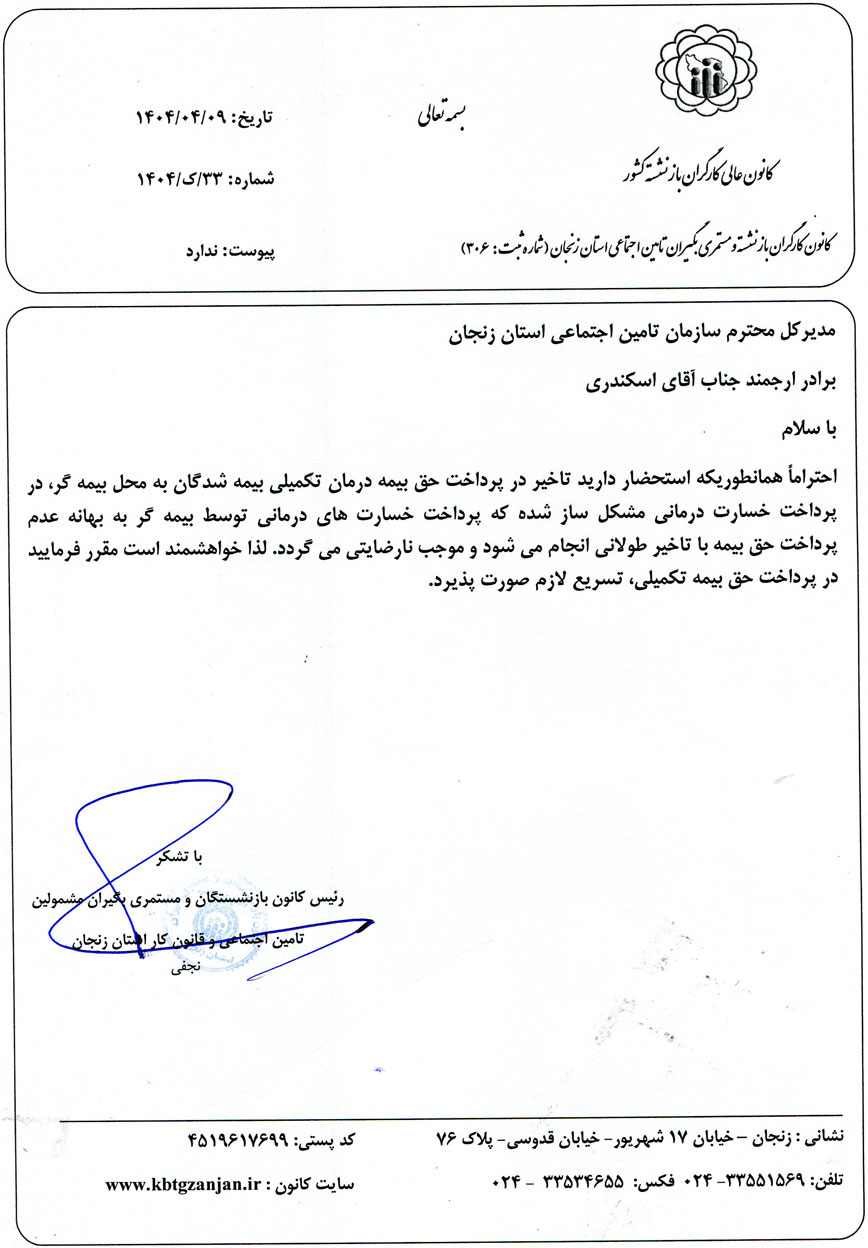 بسمه تعالی
تاریخ: ۱۴۰۴/۰۴/۰۹
کانون عالی کارگران بازنشسته کشور
شماره: ۳۳/ک/۱۴۰۴
کانون کارگران بازنشسته و مستمری بگیران تامین اجتماعی استان زنجان (شماره ثبت: ۳۰۶)
پیوست: ندارد
مدیرکل محترم سازمان تامین اجتماعی استان زنجان
برادر ارجمند جناب آقای اسکندری
با سلام
احتراماً همانطوریکه استحضار دارید تاخیر در پرداخت حق بیمه درمان تکمیلی بیمه شدگان به محل بیمه گر، در
پرداخت خسارت درمانی مشکل ساز شده که پرداخت خسارت های درمانی توسط بیمه گر به بهانه عدم
پرداخت حق بیمه با تاخیر طولانی انجام می شود و موجب نارضایتی می گردد. لذا خواهشمند است مقرر فرمایید
در پرداخت حق بیمه تکمیلی، تسریع لازم صورت پذیرد.
با تشکر
رئیس کانون بازنشستگان و مستمری بگیران مشمولین
تامین اجتماعی و قانون کار استان زنجان
نجفی
نشانی : زنجان – خیابان ۱۷ شهریور- خیابان قدوسی- پلاک ۷۶
کد پستی: ۴۵۱۹۶۱۷۶۹۹
تلفن: ۳۳۵۵۱۵۶۹- ۰۲۴ فکس: ۳۳۵۳۴۶۵۵ - ۰۲۴
سایت کانون : www.kbtgzanjan.ir